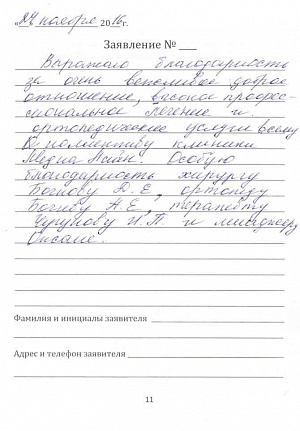 «24» ноября 2016г.
Заявление № ___
Выражаю благодарность
за очень вежливое доброе
отношение, высоко профес-
сиональное лечение и
ортопедические услуги всему
коллективу клиники
Медиа Особую
благодарность хирургу
Д. Е, ортопеду
Н. Е, терапевту
Чугунову И. П. и менеджеру
Оксане.
Фамилия и инициалы заявителя
Адрес и телефон заявителя
11